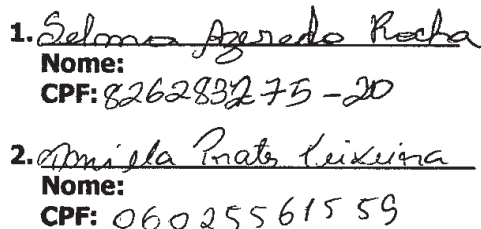 1. Selma Azeredo Rocha
Nome:
CPF: 826283275-20
2. Amiela Prates Teixeira
Nome:
CPF: 06025561559